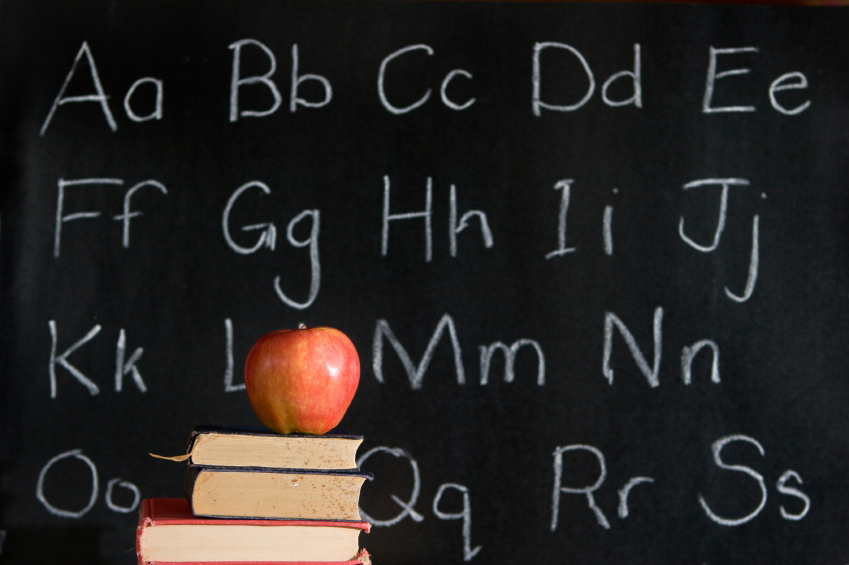 Aa Bb Cc Dd Ee
Ff Gg Hh Ii Jj
Kk L Mm Nn
Oo Qq Rr Ss